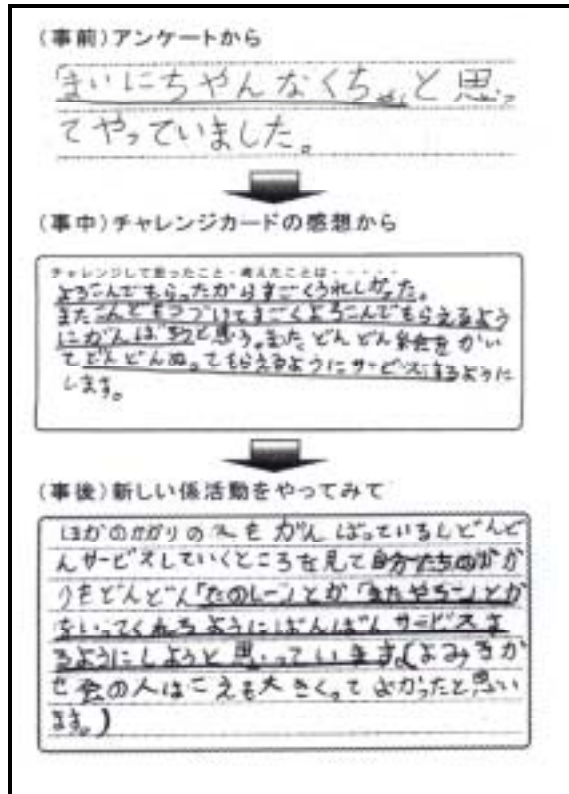 (事前)アンケートから
「まいにちやんなくちゃ」と思っ
てやっていました。
(事中)チャレンジカードの感想から
チャレンジして思ったこと・考えたことは・・・・・
よろこんでもらったからすごくうれしかった。
またこんどもつづけてすごくよろこんでもらえるよう
にがんばろうと思う。また、どんどん絵をかい
てどんどんぬってもらえるようにサービスするように
します。
(事後)新しい係活動をやってみて
ほかのかかりの人もがんばっているしどんど
んサービスしていくところを見て自分たちのかか
りもどんどん「たのしーい」とか「またやろー」とか
をいってくれるようにばんばんサービスす
るようにしようと思っています。(よみきか
せ会の人はこえも大きくってよかったと思い
ます。)